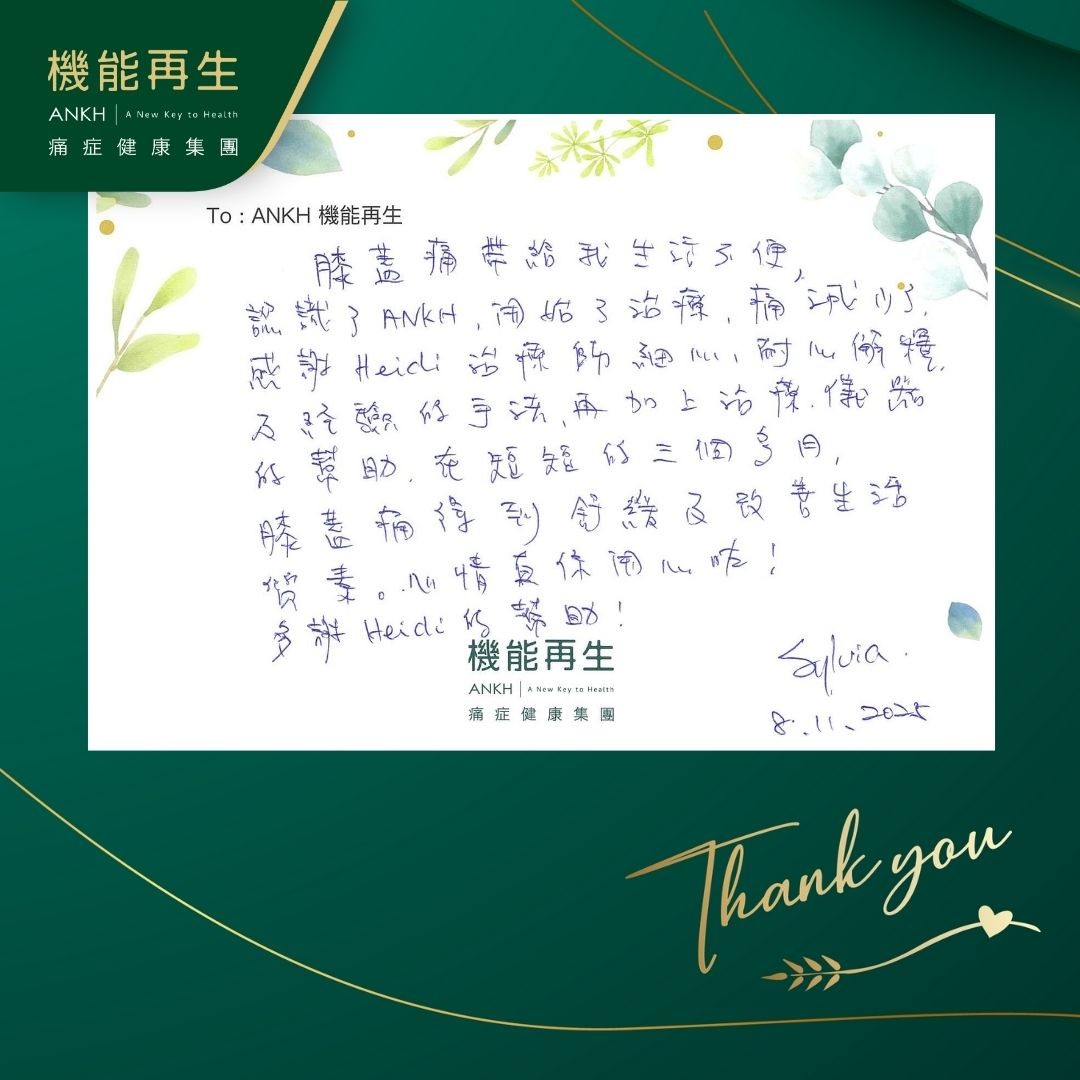 機能再生
ANKH | A New Key to Health
痛症健康集團
To : ANKH 機能再生
膝蓋痛帶給我生活不便,
認識了ANKH,開始了治療,痛減少了,
感謝Heidi治療師細心、耐心解釋,
及經驗的手法,再加上治療儀器
的幫助,在短短的三個多月,
膝蓋痛得到舒緩及改善生活
質素。心情真係開心咗!
多謝Heidi的幫助!
機能再生
ANKH | A New Key to Health
痛症健康集團
Sylvia.
8.11.2025
Thank you